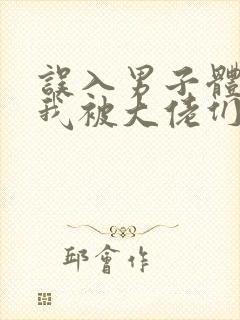 誤入男子體
我被大佬们
邱會作